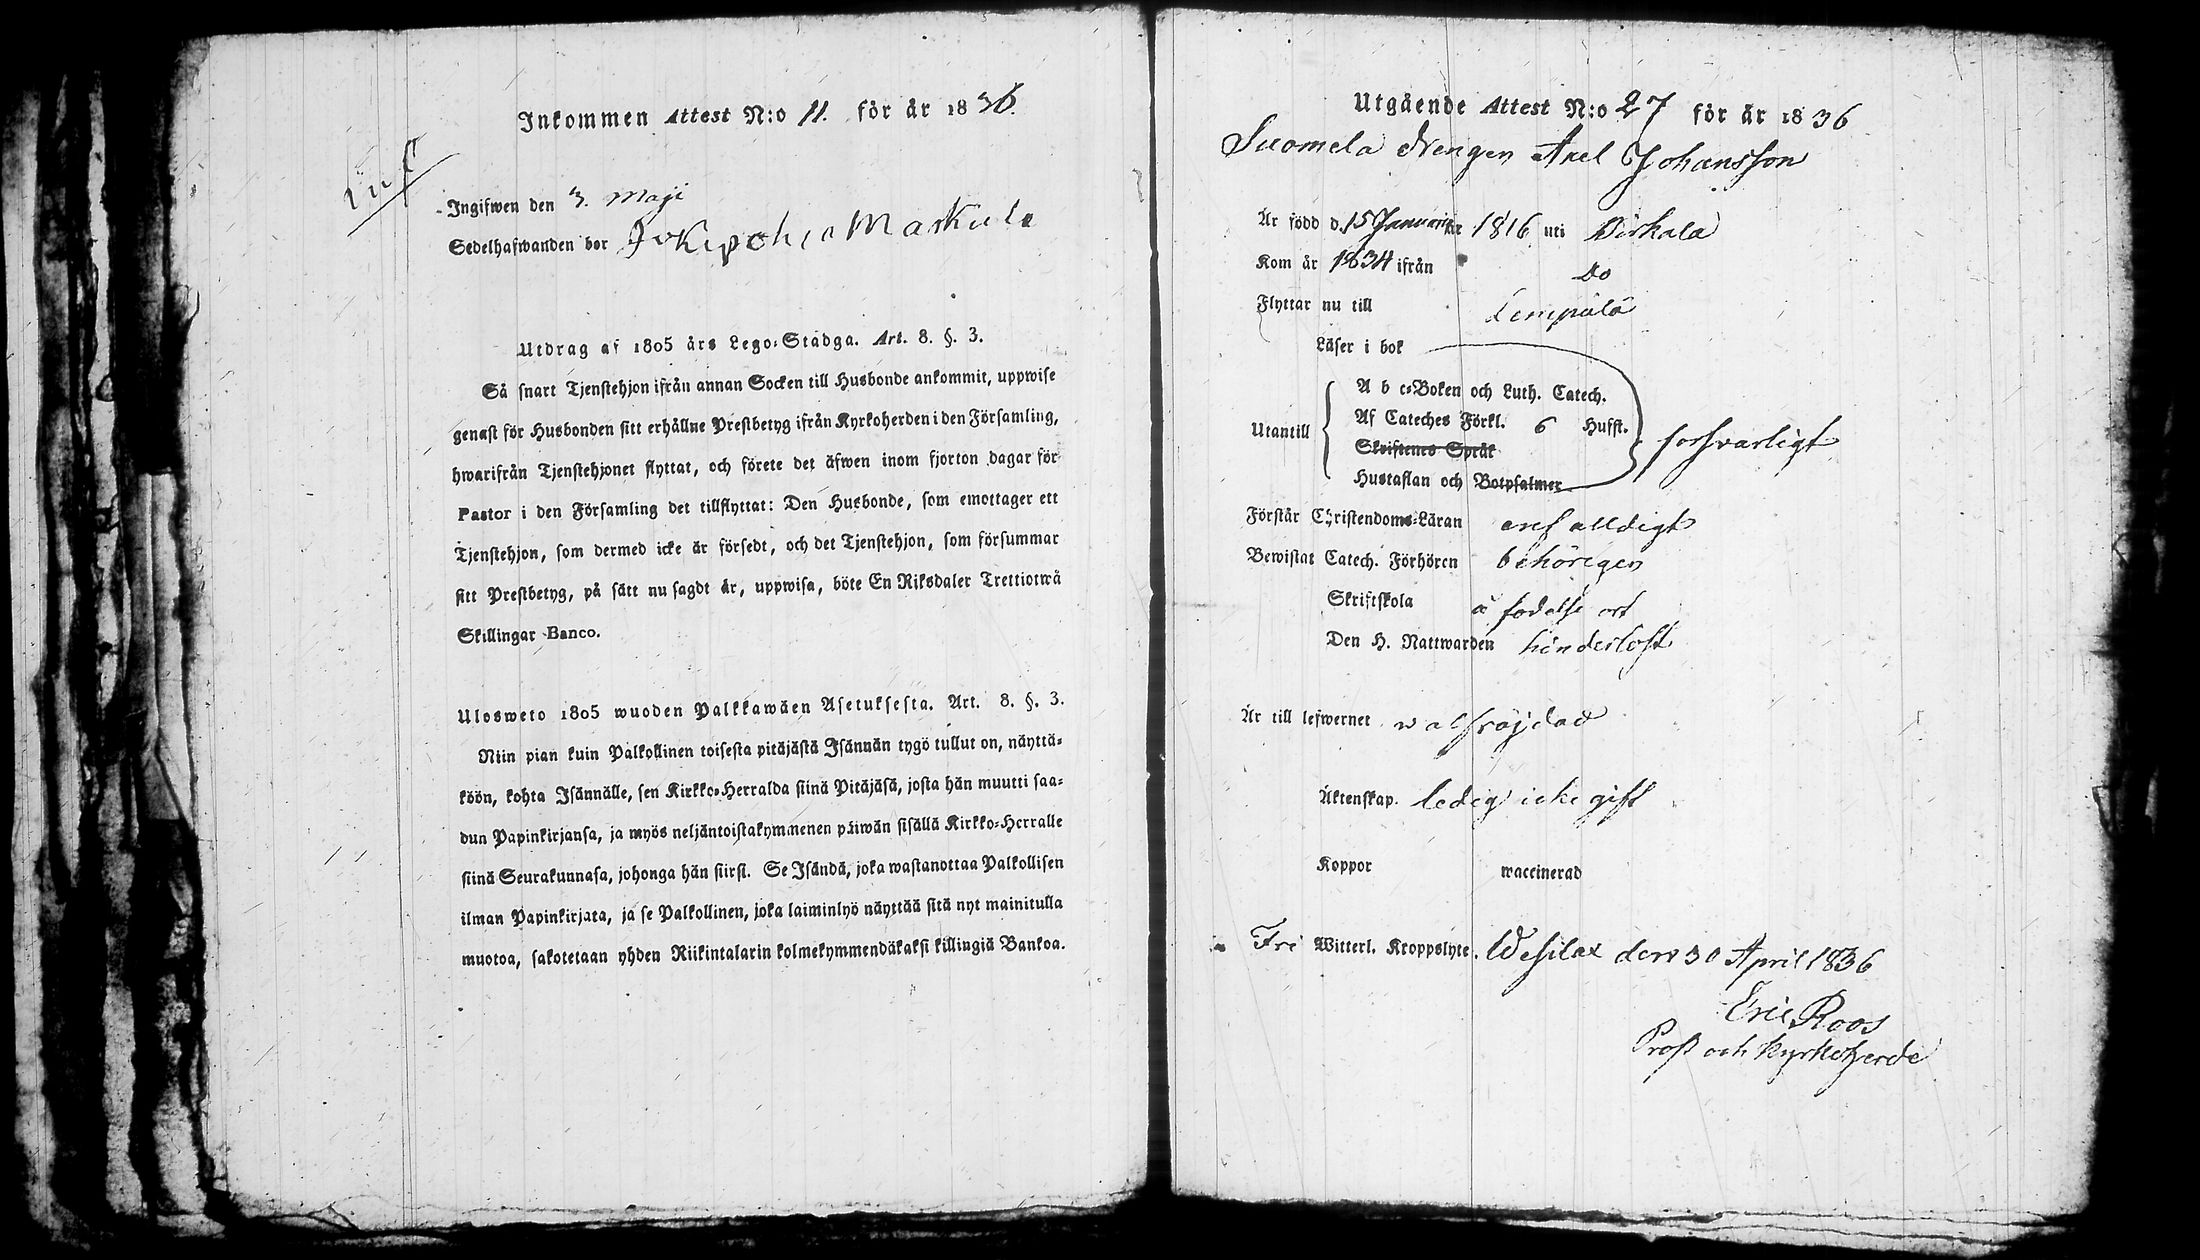 Inkommen Attest N:o 11. för år 1836.
Ingifwen den 3. Maji
Sedelhafwanden bor Jokipohja Markula
Utdrag af 1805 års Lego-Stadga. Art. 8. §. 3.
Så snart Tjenstehjon ifrån annan Socken till Husbonde ankommit, uppwise
genast för Husbonden sitt erhållne Prestbetyg ifrån Kyrkoherden i den Församling,
hwarifrån Tjenstehjonet flyttat, och förete det äfwen inom fjorton dagar för
Pastor i den Församling det tillflyttat: Den Husbonde, som emottager ett
Tjenstehjon, som dermed icke är försedt, och det Tjenstehjon, som försummar
sitt Prestbetyg, på sätt nu sagdt är, uppwisa, böte En Riksdaler Trettiotwå
Skillingar Banco.
Ulosweto 1805 wuoden Palkkawäen Asetuksesta. Art. 8. §. 3.
Niin pian kuin Palkollinen toisesta pitäjästä Isännän tygö tullut on, näyttä-
köön, kohta Isännälle, sen Kirkko-Herralda siinä Pitäjäsä, josta hän muutti saa-
dun Papinkirjansa, ja myös neljäntoistakymmenen päiwän sisällä Kirkko-Herralle
siinä Seurakunnasa, johonga hän siirst. Se Isändä, joka wastanottaa Palkollisen
ilman Papinkirjata, ja se Palkollinen, joka laiminlyö näyttää sitä nyt mainitulla
muotoa, sakotetaan yhden Riikintalarin kolmekymmendäkaksi killingiä Bankoa.
Utgående Attest N:o 27 för år 1836
Suomela Drengen Axel Johansson
Är född d. 15 Januarii år 1816 uti Birkala
Kom år 1834 ifrån Do
Flyttar nu till Lempälä
Läser i bok
Utantill
A b c-Boken och Luth. Catech.
Af Cateches Förkl. 6 Hufst.
Skriftenes Språk
Hustaflan och Botpsalmer
försvarligt
Förstår Christendoms-Läran enfalldigt
Bewistat Catech. Förhören behörigen
Skriftskola å födelse ort
Den H. Nattwarden hinderlöst
Är till lefwernet wälfräjdad
Äktenskap. ledig icke gift
Koppor waccinerad
Fri Witterl. Kroppslyte. Wesilax den 30 April 1836
Eric Roos
Prost och Kyrkoherde